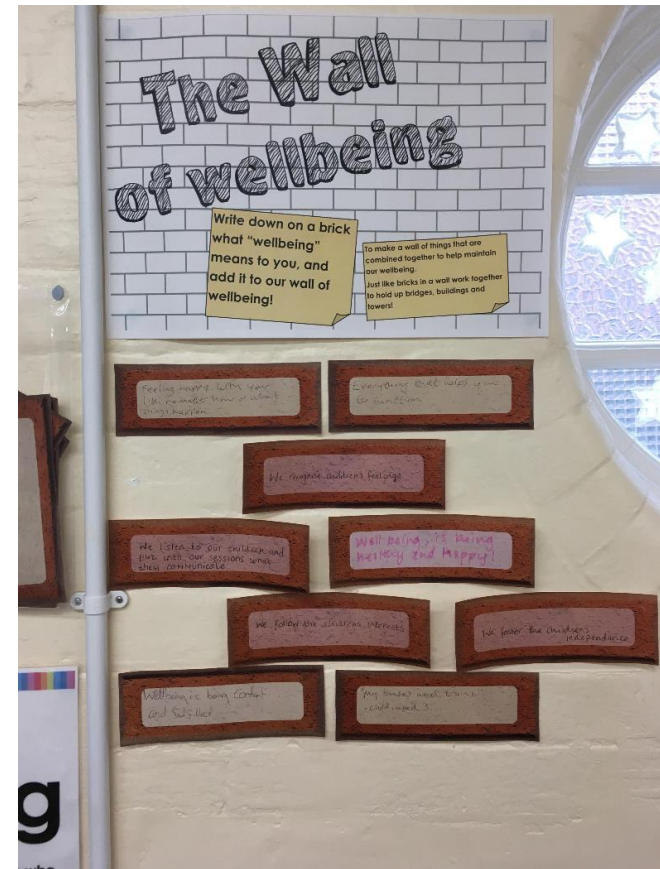 The Wall
of wellbeing
Write down on a brick
what "wellbeing"
means to you, and
add it to our wall of
wellbeing!
To make a wall of things that are
combined together to help maintain
our wellbeing.
Just like bricks in a wall work together
to hold up bridges, buildings and
towers!
Feeling happy with your
life no matter how or what
things happen
Everything that helps you
to function
We children's feelings
We listen to our children and
our sessions what
they communicate
Well being, is being
healthy and Happy!
We follow the children's interests
We foster the children's
independance
Wellbeing is being content
and
My
g